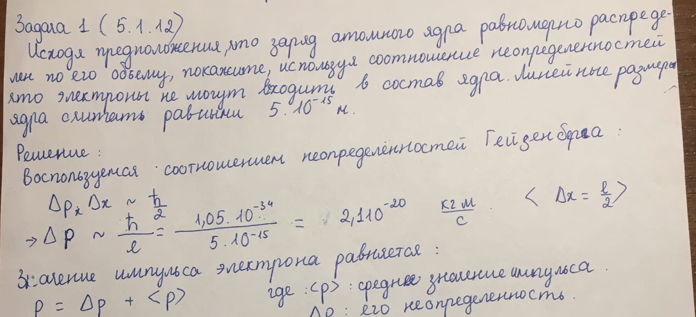 Задача 1 (5.1.12)
Исходя предположения, что заряд атомного ядра равномерно распреде-
лен по его объему, покажите, используя соотношение неопределенностей
что электроны не могут входить в состав ядра. Линейные размеры
ядра считать равными 5·10⁻¹⁵ м.
Решение:
Воспользуемся соотношением неопределённостей Гейзенберга:
Δpₓ Δx ~ ħ/2
→ Δp ~ ħ/ℓ = 1,05·10⁻³⁴/5·10⁻¹⁵ = 2,1 10⁻²⁰ кг м/с. < Δx = ℓ/2 >
Значение импульса электрона равняется:
p = Δp + <p> где: <p>: среднее значение импульса.
Δp: его неопределенность.